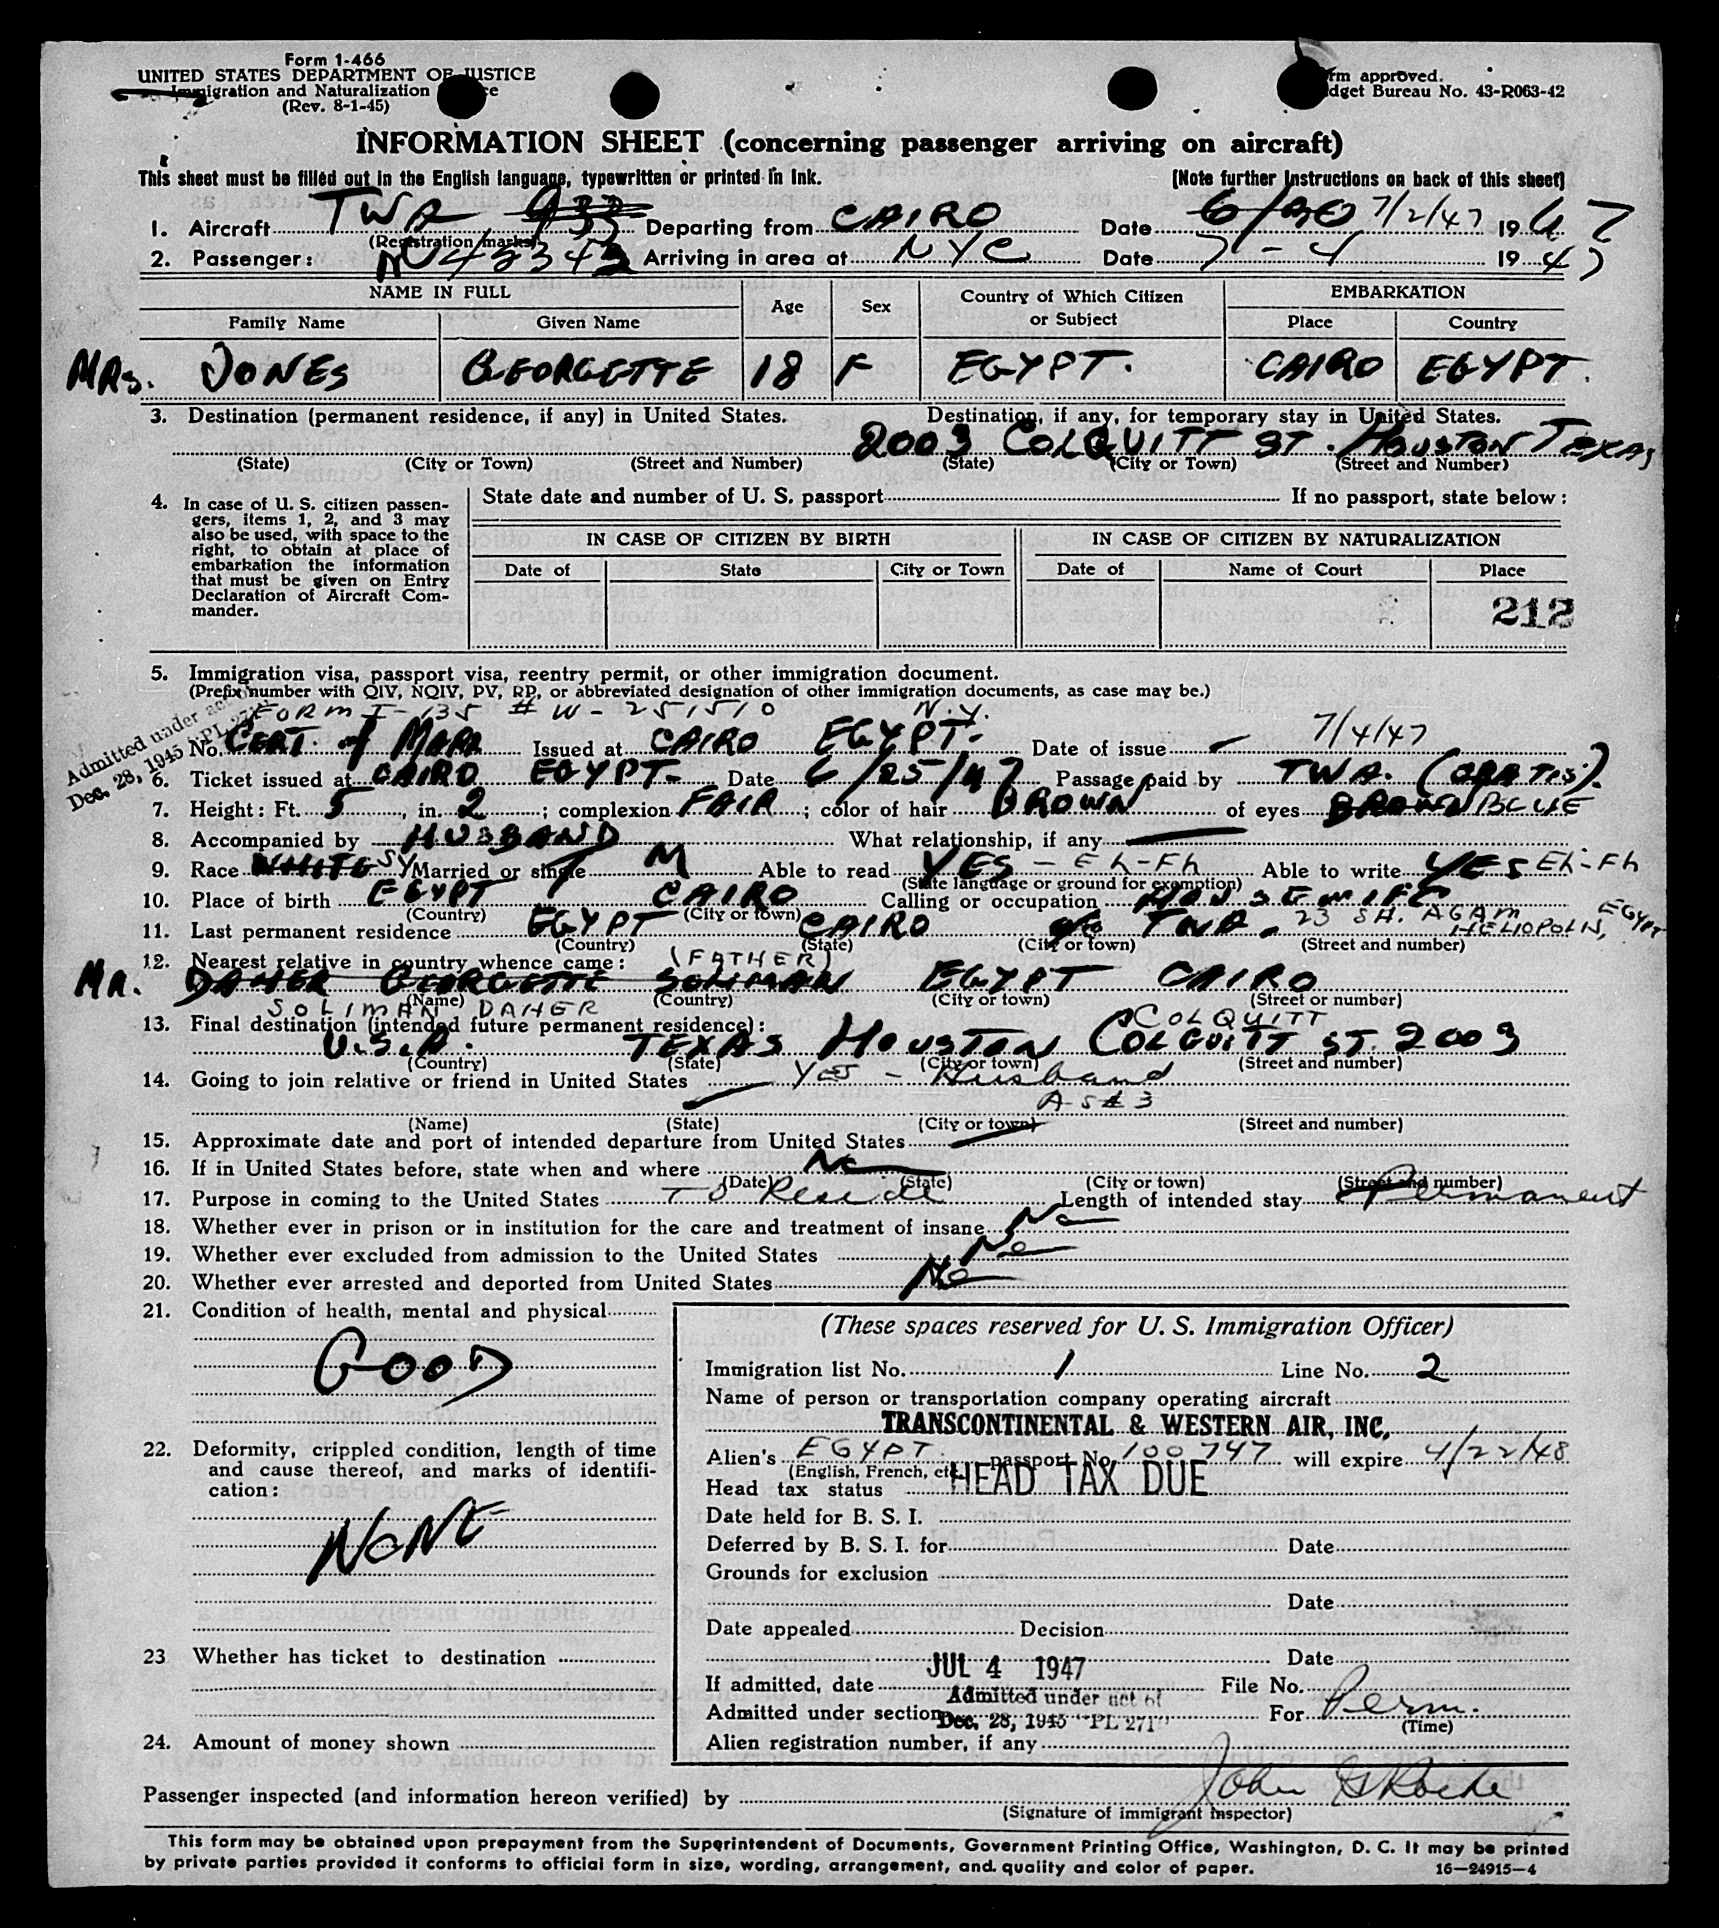 Form 1-466
UNITED STATES DEPARTMENT OF JUSTICE
Immigration and Naturalization
(Rev. 8-1-45)
rm approved.
dget Bureau No. 43-R063-42
INFORMATION SHEET (concerning passenger arriving on aircraft)
This sheet must be filled out in the English language, typewritten or printed in ink.
(Note further instructions on back of this sheet)
1. Aircraft TWA 933 Departing from CAIRO Date 6/30 7/2/47 1947
(Registration marks)
2. Passenger: Arriving in area at NYC Date 7-4 1947
NAME IN FULL Age Sex Country of Which Citizen or Subject EMBARKATION
Family Name Given Name Place Country
MRS. JONES GEORGETTE 18 F EGYPT. CAIRO EGYPT.
3. Destination (permanent residence, if any) in United States. Destination, if any, for temporary stay in United States.
2003 COLQUITT ST. HOUSTON TEXAS
(State) (City or Town) (Street and Number) (State) (City or Town) (Street and Number)
4. In case of U. S. citizen passen-
gers, items 1, 2, and 3 may
also be used, with space to the
right, to obtain at place of
embarkation the information
that must be given on Entry
Declaration of Aircraft Com-
mander.
State date and number of U. S. passport If no passport, state below:
IN CASE OF CITIZEN BY BIRTH IN CASE OF CITIZEN BY NATURALIZATION
Date of State City or Town Date of Name of Court Place
212
5. Immigration visa, passport visa, reentry permit, or other immigration document.
(Prefix number with QIV, NQIV, PV, RP, or abbreviated designation of other immigration documents, as case may be.)
Admitted under act
Dec. 28, 1945 "PL 271"
FORM I-135 # W-251510 N.Y.
No. CERT. of MARR Issued at CAIRO EGYPT. Date of issue 7/4/47
6. Ticket issued at CAIRO EGYPT. Date 6/25/47 Passage paid by TWA. (GRATIS).
7. Height: Ft. 5, in. 2; complexion FAIR; color of hair BROWN of eyes BROWN BLUE
8. Accompanied by HUSBAND What relationship, if any
9. Race WHITE SY Married or single M Able to read YES - Eh-Fh Able to write YES Eh-Fh
(State language or ground for exemption)
10. Place of birth EGYPT CAIRO Calling or occupation HOUSEWIFE
(Country) (City or town)
11. Last permanent residence EGYPT CAIRO TWA. 23 SH. AGAM HELIOPOLIS, EGYPT
(Country) (State) (City or town) (Street and number)
12. Nearest relative in country whence came: (FATHER)
MR. DAHER GEORGETTE SOLIMAN EGYPT CAIRO
(Name) (Country) (City or town) (Street or number)
SOLIMAN DAHER
13. Final destination (intended future permanent residence): COLQUITT
U.S.A. TEXAS HOUSTON COLQUITT ST. 2003
(Country) (State) (City or town) (Street and number)
14. Going to join relative or friend in United States YES - Husband
AS #3
(Name) (State) (City or town) (Street and number)
15. Approximate date and port of intended departure from United States
16. If in United States before, state when and where No
(Date) (State) (City or town) (Street and number)
17. Purpose in coming to the United States To Reside Length of intended stay Permanent
18. Whether ever in prison or in institution for the care and treatment of insane No
19. Whether ever excluded from admission to the United States No
20. Whether ever arrested and deported from United States No
21. Condition of health, mental and physical
GOOD
22. Deformity, crippled condition, length of time
and cause thereof, and marks of identifi-
cation:
NONE
23 Whether has ticket to destination
24. Amount of money shown
(These spaces reserved for U. S. Immigration Officer)
Immigration list No. 1 Line No. 2
Name of person or transportation company operating aircraft
TRANSCONTINENTAL & WESTERN AIR, INC.
Alien's EGYPT. passport No. 100747 will expire 4/22/48
(English, French, etc.)
Head tax status HEAD TAX DUE
Date held for B. S. I.
Deferred by B. S. I. for Date
Grounds for exclusion
Date
Date appealed Decision
Date
If admitted, date JUL 4 1947 File No.
Admitted under section Admitted under act of Dec. 28, 1945 "PL 271" For Perm.
(Time)
Alien registration number, if any
Passenger inspected (and information hereon verified) by John G Roche
(Signature of immigrant inspector)
This form may be obtained upon prepayment from the Superintendent of Documents, Government Printing Office, Washington, D. C. It may be printed
by private parties provided it conforms to official form in size, wording, arrangement, and quality and color of paper. 16—24915-4